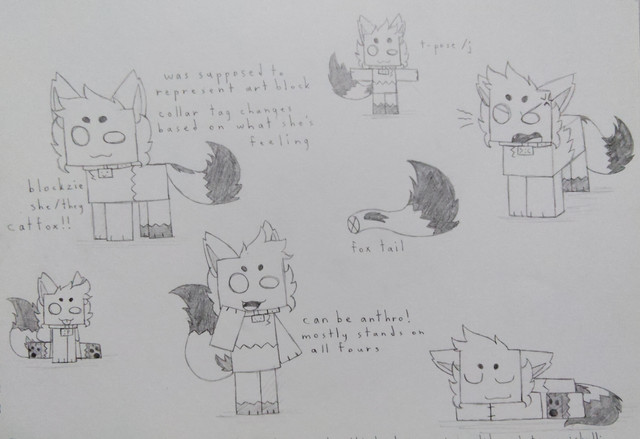 t-pose /j
was supposed to
represent art block
collar tag changes
based on what she's
feeling
blockzie
she/they
catfox!!
fox tail
can be anthro!
mostly stands on
all fours